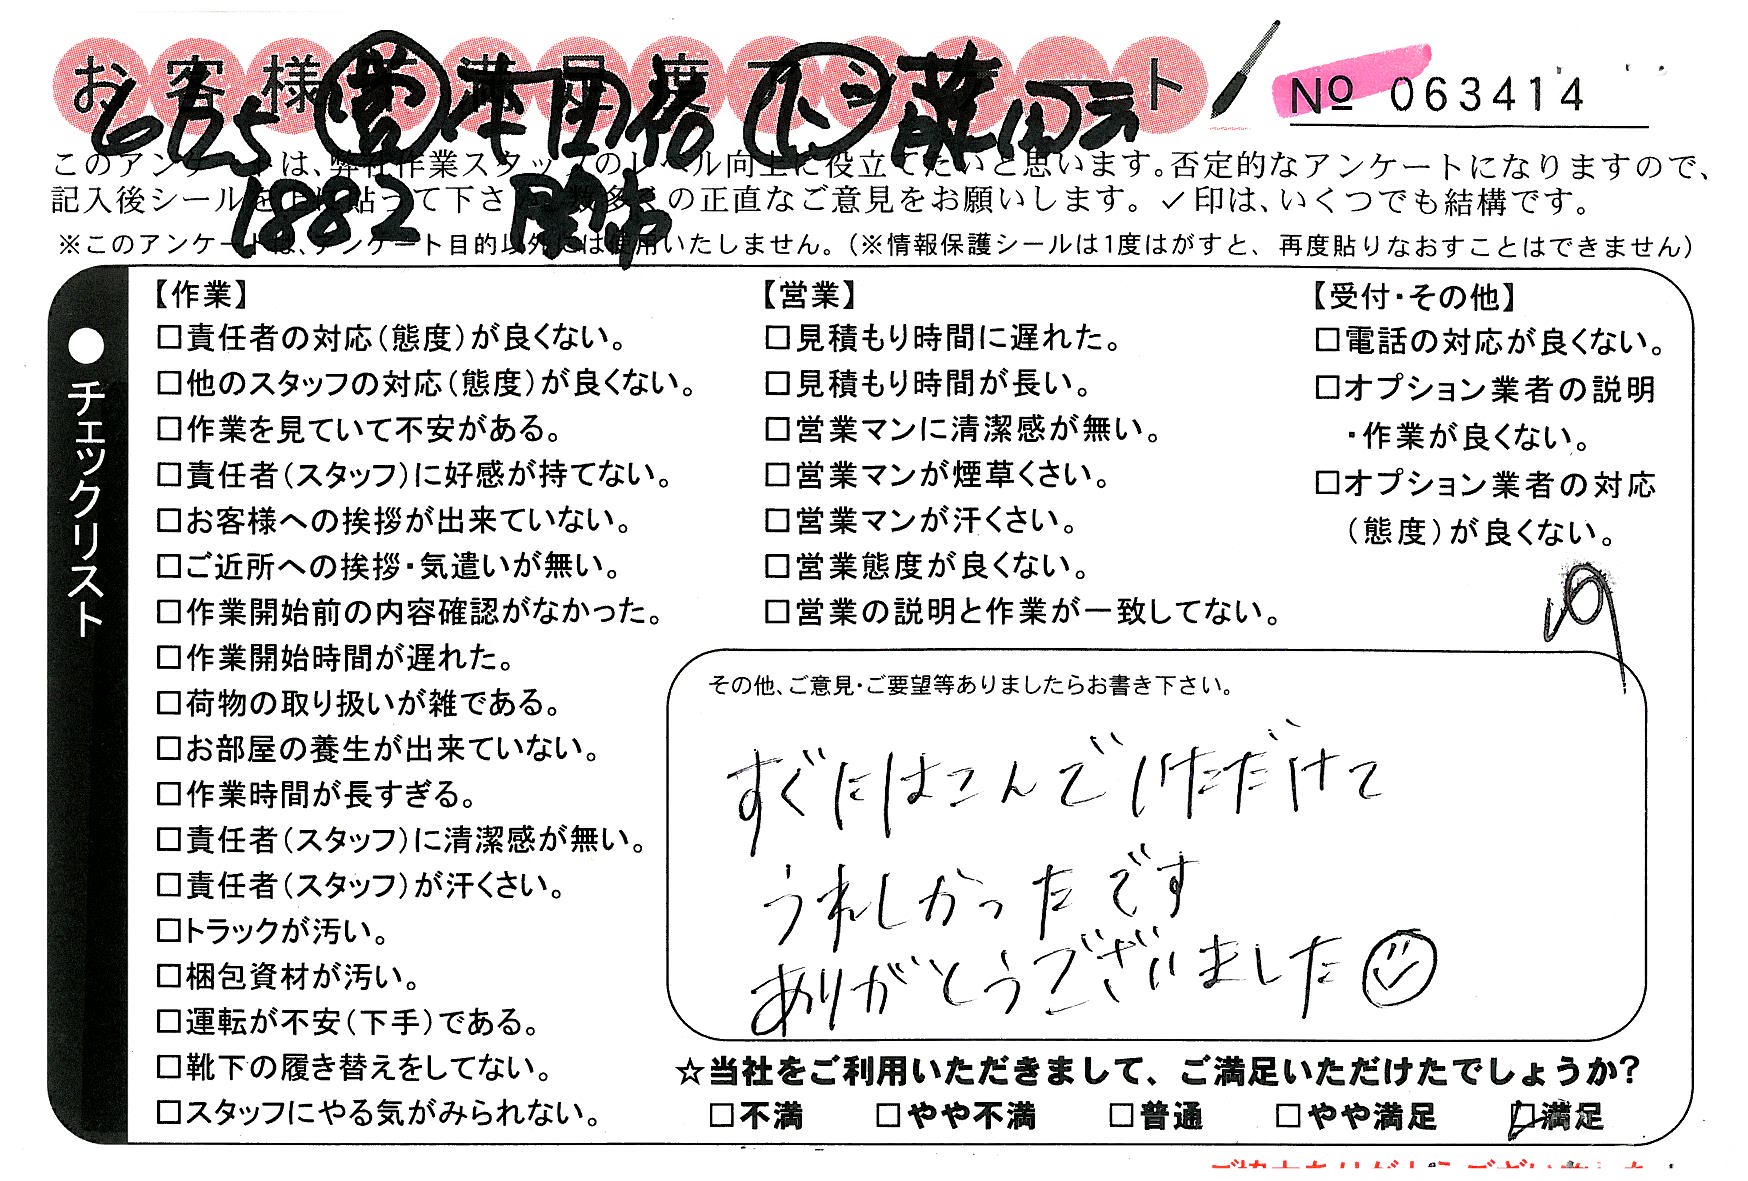 お客様不満足度アンケート
№ 063414
6/25 営 本田裕 下 藤田
1882
このアンケートは、弊社作業スタッフのレベル向上に役立てたいと思います。否定的なアンケートになりますので、
記入後シールを上に貼って下さい。数多くの正直なご意見をお願いします。✓印は、いくつでも結構です。
※このアンケートは、アンケート目的以外には使用いたしません。（※情報保護シールは1度はがすと、再度貼りなおすことはできません）
●チェックリスト
【作業】
□責任者の対応（態度）が良くない。
□他のスタッフの対応（態度）が良くない。
□作業を見ていて不安がある。
□責任者（スタッフ）に好感が持てない。
□お客様への挨拶が出来ていない。
□ご近所への挨拶・気遣いが無い。
□作業開始前の内容確認がなかった。
□作業開始時間が遅れた。
□荷物の取り扱いが雑である。
□お部屋の養生が出来ていない。
□作業時間が長すぎる。
□責任者（スタッフ）に清潔感が無い。
□責任者（スタッフ）が汗くさい。
□トラックが汚い。
□梱包資材が汚い。
□運転が不安（下手）である。
□靴下の履き替えをしてない。
□スタッフにやる気がみられない。
【営業】
□見積もり時間に遅れた。
□見積もり時間が長い。
□営業マンに清潔感が無い。
□営業マンが煙草くさい。
□営業マンが汗くさい。
□営業態度が良くない。
□営業の説明と作業が一致してない。
【受付・その他】
□電話の対応が良くない。
□オプション業者の説明
・作業が良くない。
□オプション業者の対応
（態度）が良くない。
その他、ご意見・ご要望等ありましたらお書き下さい。
すぐにはこんでいただけて
うれしかったです
ありがとうございました
☆当社をご利用いただきまして、ご満足いただけたでしょうか？
□不満 □やや不満 □普通 □やや満足 □満足
ご協力ありがとうございました